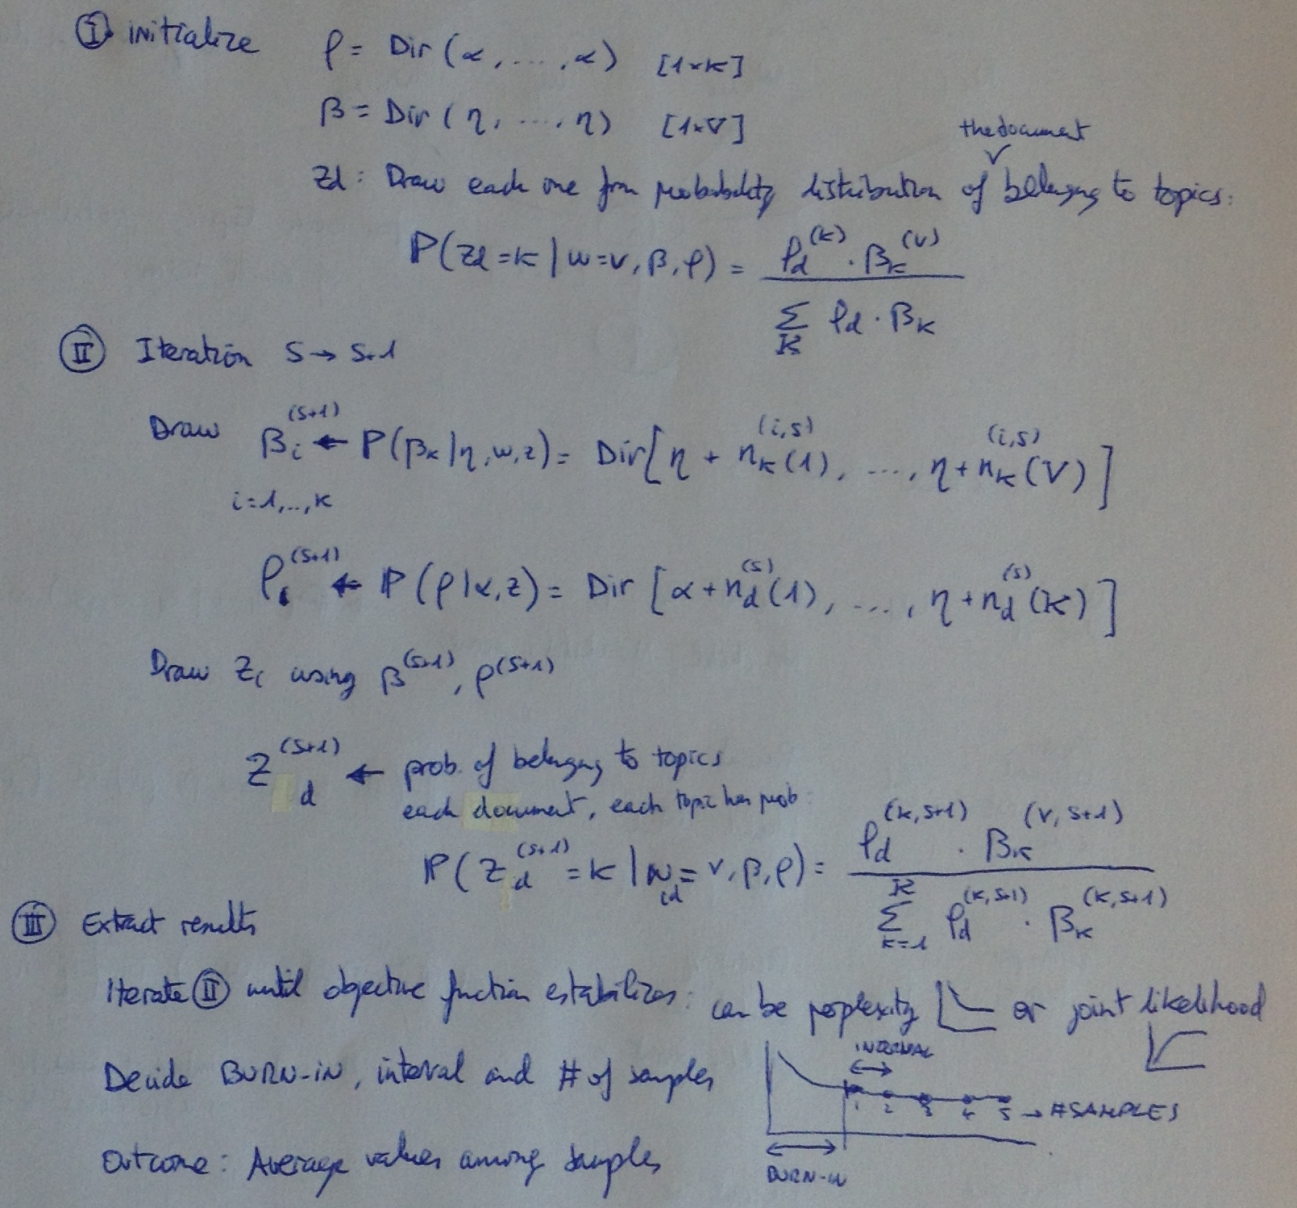 I initialize ρ = Dir (α, ...., α) [1×K]
β = Dir (η, ...., η) [1×V]
the document
zd : Draw each one from probability distribution of belonging to topics:
P(zd = k | w = v, β, ρ) = ρd^(k) · βk^(v) / Σ_K ρd · βk
II Iteration s → s+1
Draw βi^(s+1) ← P(βk | η, w, z) = Dir[η + nk^(i,s)(1), ...., η + nk^(i,s)(V)]
i=1,..,K
ρi^(s+1) ← P(ρ | α, z) = Dir [α + nd^(s)(1), ...., η + nd^(s)(K)]
Draw zi using β^(s+1), ρ^(s+1)
Z d^(s+1) ← prob. of belonging to topics
each document, each topic has prob:
P(Z d^(s+1) = k | w id = v, β, ρ) = ρd^(k,s+1) · βk^(v,s+1) / Σ_{k=1}^{K} ρd^(k,s+1) · βk^(k,s+1)
III Extract results
Iterate II until objective function estabilizes: can be perplexity or joint likelihood
Decide BURN-IN, interval and # of samples
INTERVAL
1 2 3 4 5 → #SAMPLES
BURN-IN
Outcome: Average values among samples